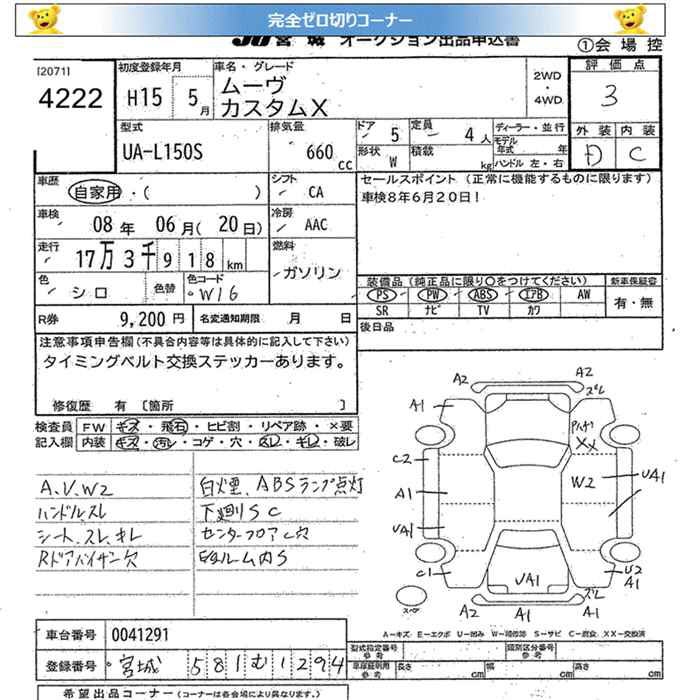 完全ゼロ切りコーナー
JU 宮城 オークション出品申込書
①会場控
[2071]
4222
初度登録年月
H15 5月
車名・グレード
ムーヴ
カスタムX
2WD
・
4WD
評価点
3
外装 内装
D C
型式
UA-L150S
排気量
660 cc
ドア 5
定員 4人
形状 W
積載 kg
ディーラー・並行
モデル年式 年
ハンドル 左・右
車歴
自家用・( )
シフト
CA
セールスポイント (正常に機能するものに限ります)
車検8年6月20日!
車検
08年 06月(20日)
冷房
AAC
走行
17万3千918km
燃料
ガソリン
色
シロ
色替
色コード
W16
装備品(純正品に限り○をつけてください)
新車保証書
PS PW ABS エアB AW
SR ナビ TV カワ
有・無
R券 9,200円
名変通知期限 月 日
後日品
注意事項申告欄(不具合内容等は具体的に記入して下さい)
タイミングベルト交換ステッカーあります。
修復歴 有 [箇所 ]
検査員記入欄
FW キズ・飛石・ヒビ割・リペア跡・×要
内装 キズ・汚レ・コゲ・穴・スレ・キレ・破レ
A.V.W2
ハンドルスレ
シート、スレ、キレ
Rドアバイザー欠
白煙、ABSランプ点灯
下廻りSC
センターフロアC穴
ルーム内S
A2
A2
ズレ
A1
XX
C2
A1
UA1
C1
W2
UA1
U2
A1
UA1
スペア
A2
A1
ズレ
A1
A-キズ E-エクボ U-凹み W-補修跡 S-サビ C-腐食 XX-交換済
車台番号 0041291
登録番号 宮城 581む1294
型式指定番号 参考
類別区分番号 参考
車庫証明用 参考
長さ cm
幅 cm
高さ cm
希望出品コーナー(コーナーは各会場により異なります。)